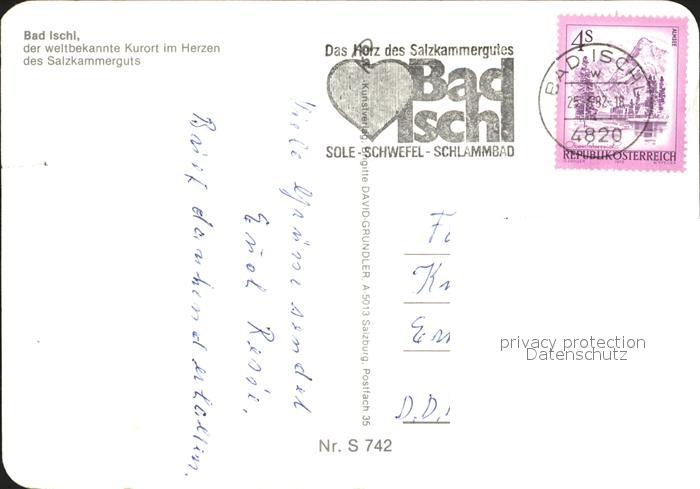 Bad Ischl,
der weltbekannte Kurort im Herzen
des Salzkammerguts
Das Herz des Salzkammergutes
Bad
Ischl
SOLE - SCHWEFEL - SCHLAMMBAD
BAD ISCHL
4820
4S
ALMSEE
REPUBLIK ÖSTERREICH
Kunstverlag Brigitte DAVID-GRÜNDLER, A-5013 Salzburg, Postfach 35
Viele Grüsse sendet
Euch Resi.
Brief dankend erhalten.
D.D.
privacy protection
Datenschutz
Nr. S 742